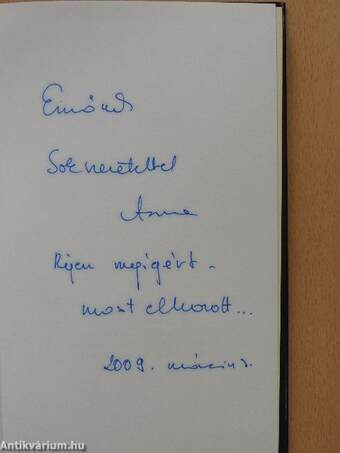 Ernőnek
Sok szeretettel
Anna
Régen megígért -
most elkorott...
2009. március.
Antikvárium.hu